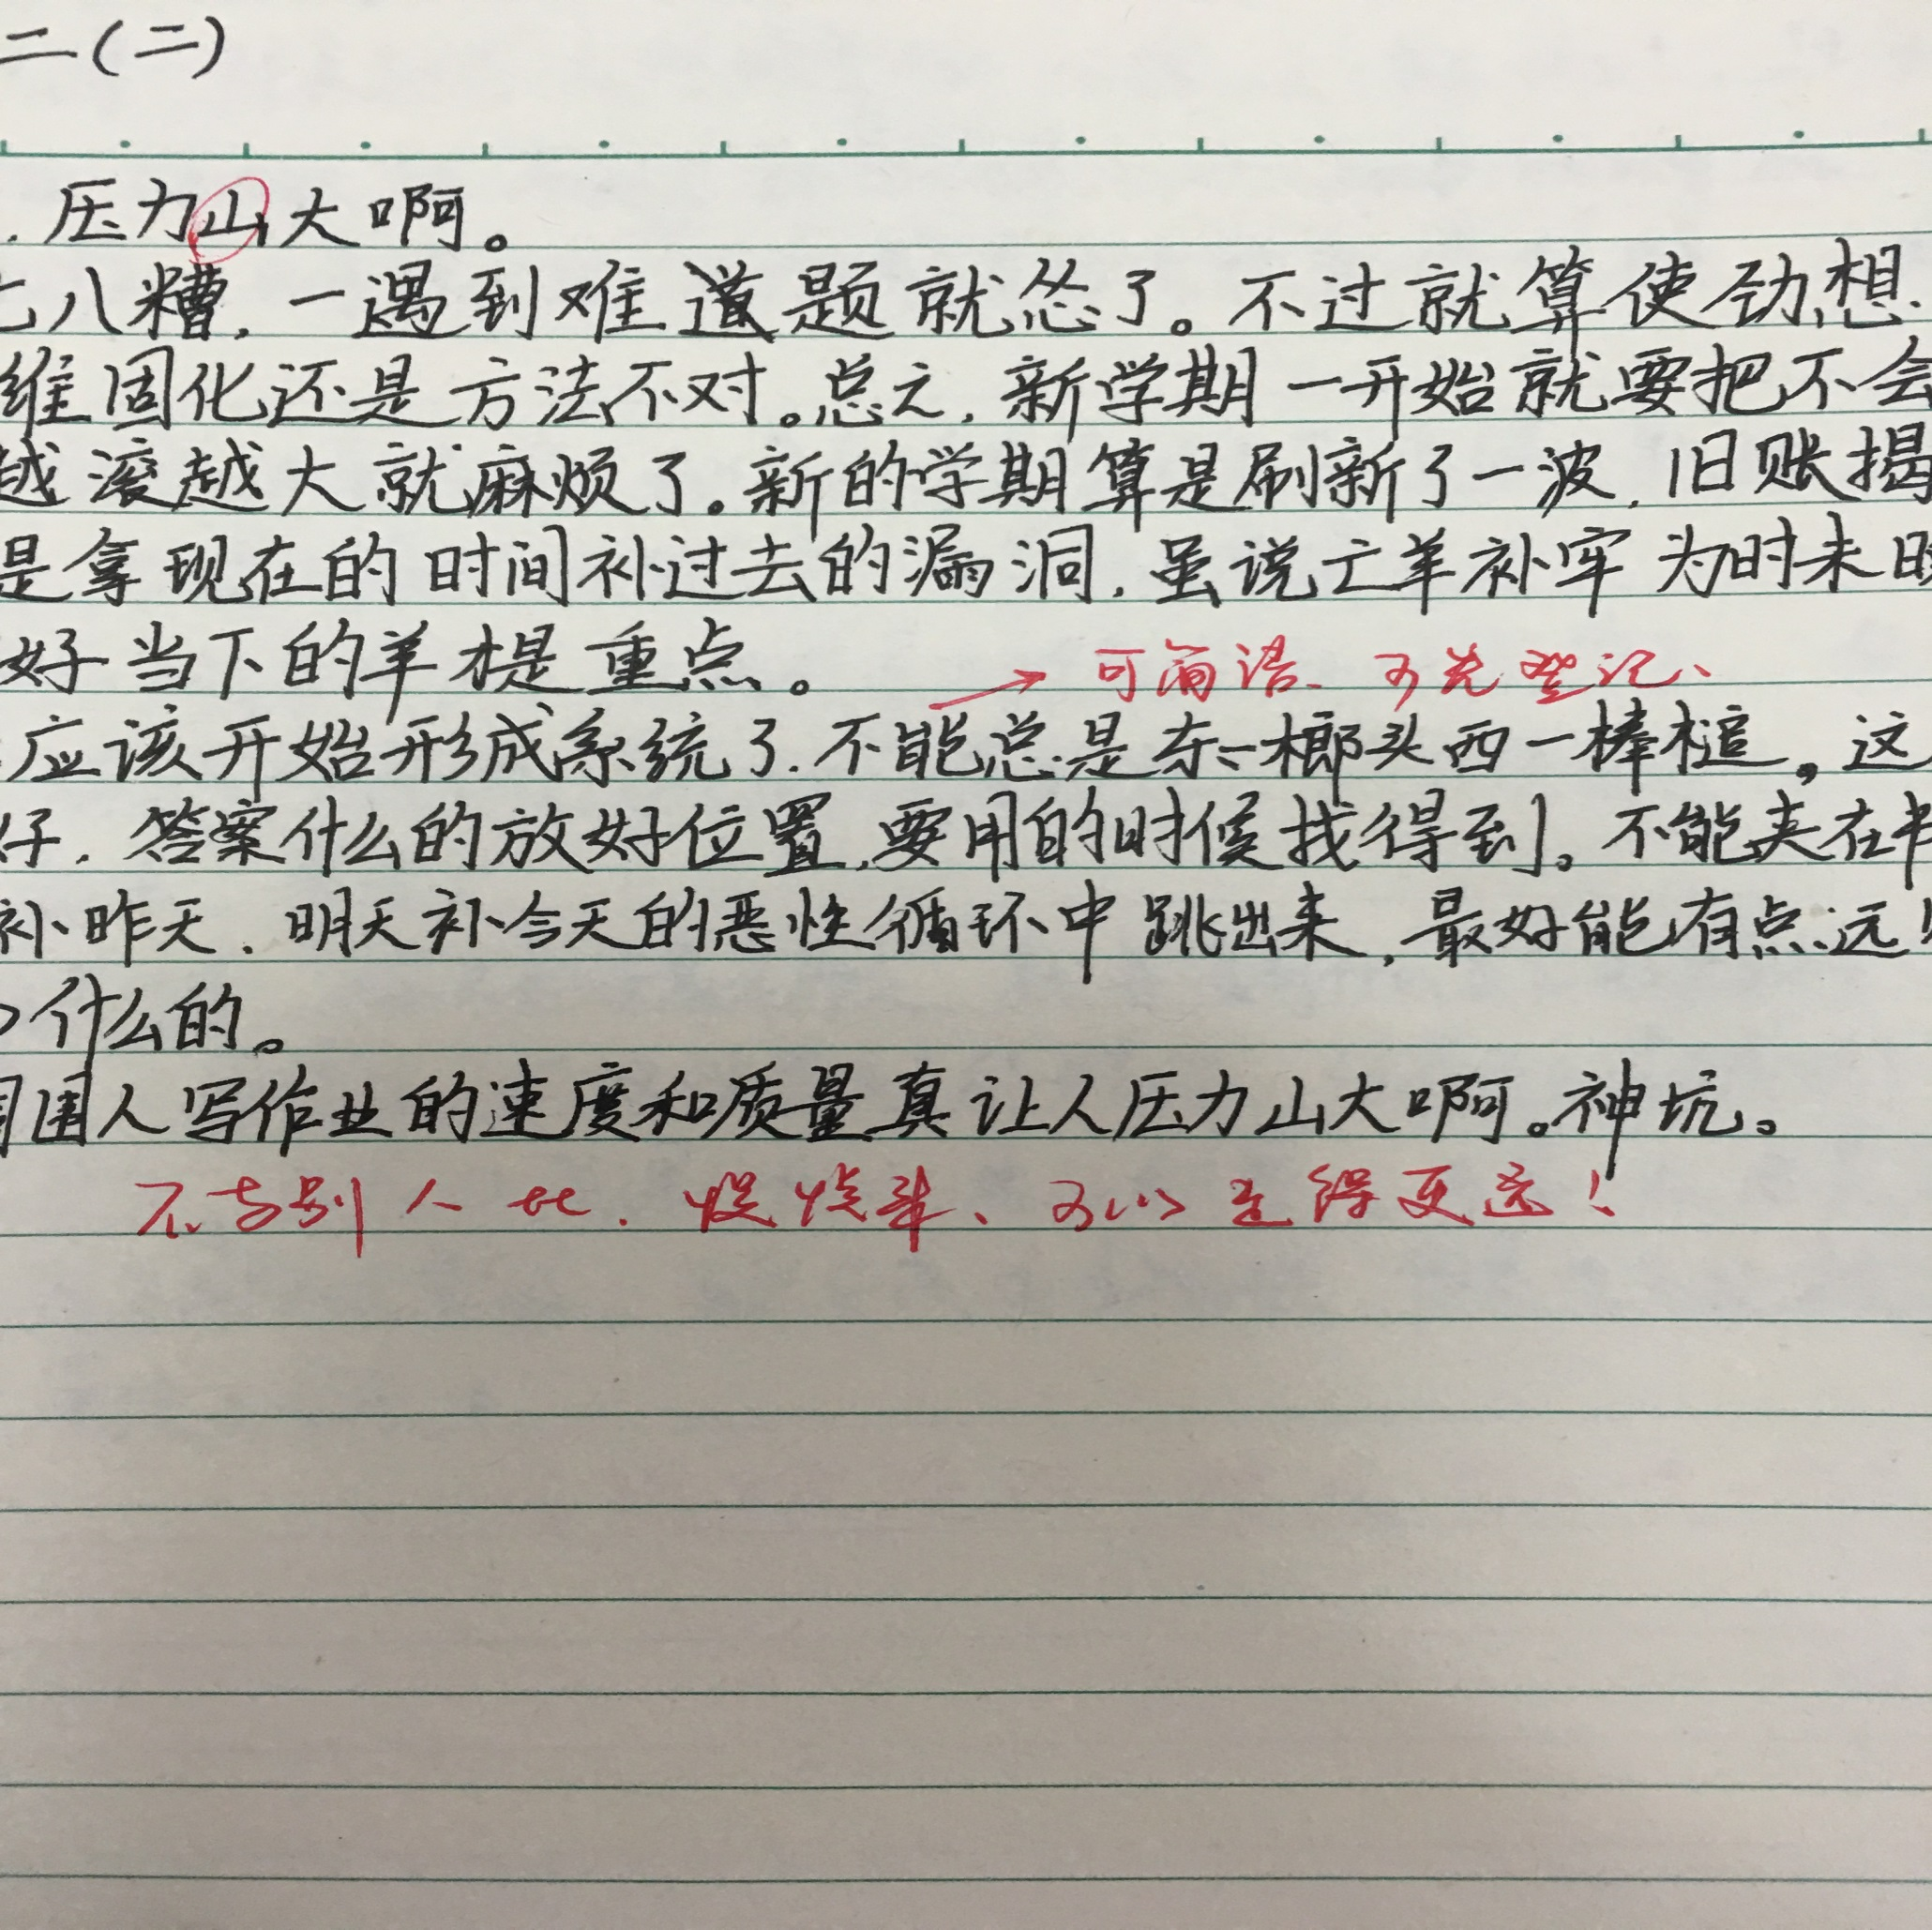 二(二)
压力山大啊。
七八糟,一遇到难道题就怂了。不过就算使劲想
维固化还是方法不对。总之,新学期一开始就要把不会
越滚越大就麻烦了。新的学期算是刷新了一波,旧账揭
是拿现在的时间补过去的漏洞,虽说亡羊补牢为时未晚
好当下的羊才是重点。
可简洁、可先登记、
应该开始形成系统了.不能总是东一榔头西一棒槌。这
好.答案什么的放好位置,要用的时候找得到。不能夹在书
补昨天.明天补今天的恶性循环中跳出来,最好能有点远
什么的。
周围人写作业的速度和质量真让人压力山大啊。神坑。
不与别人比.慢慢来、可以走得更远!